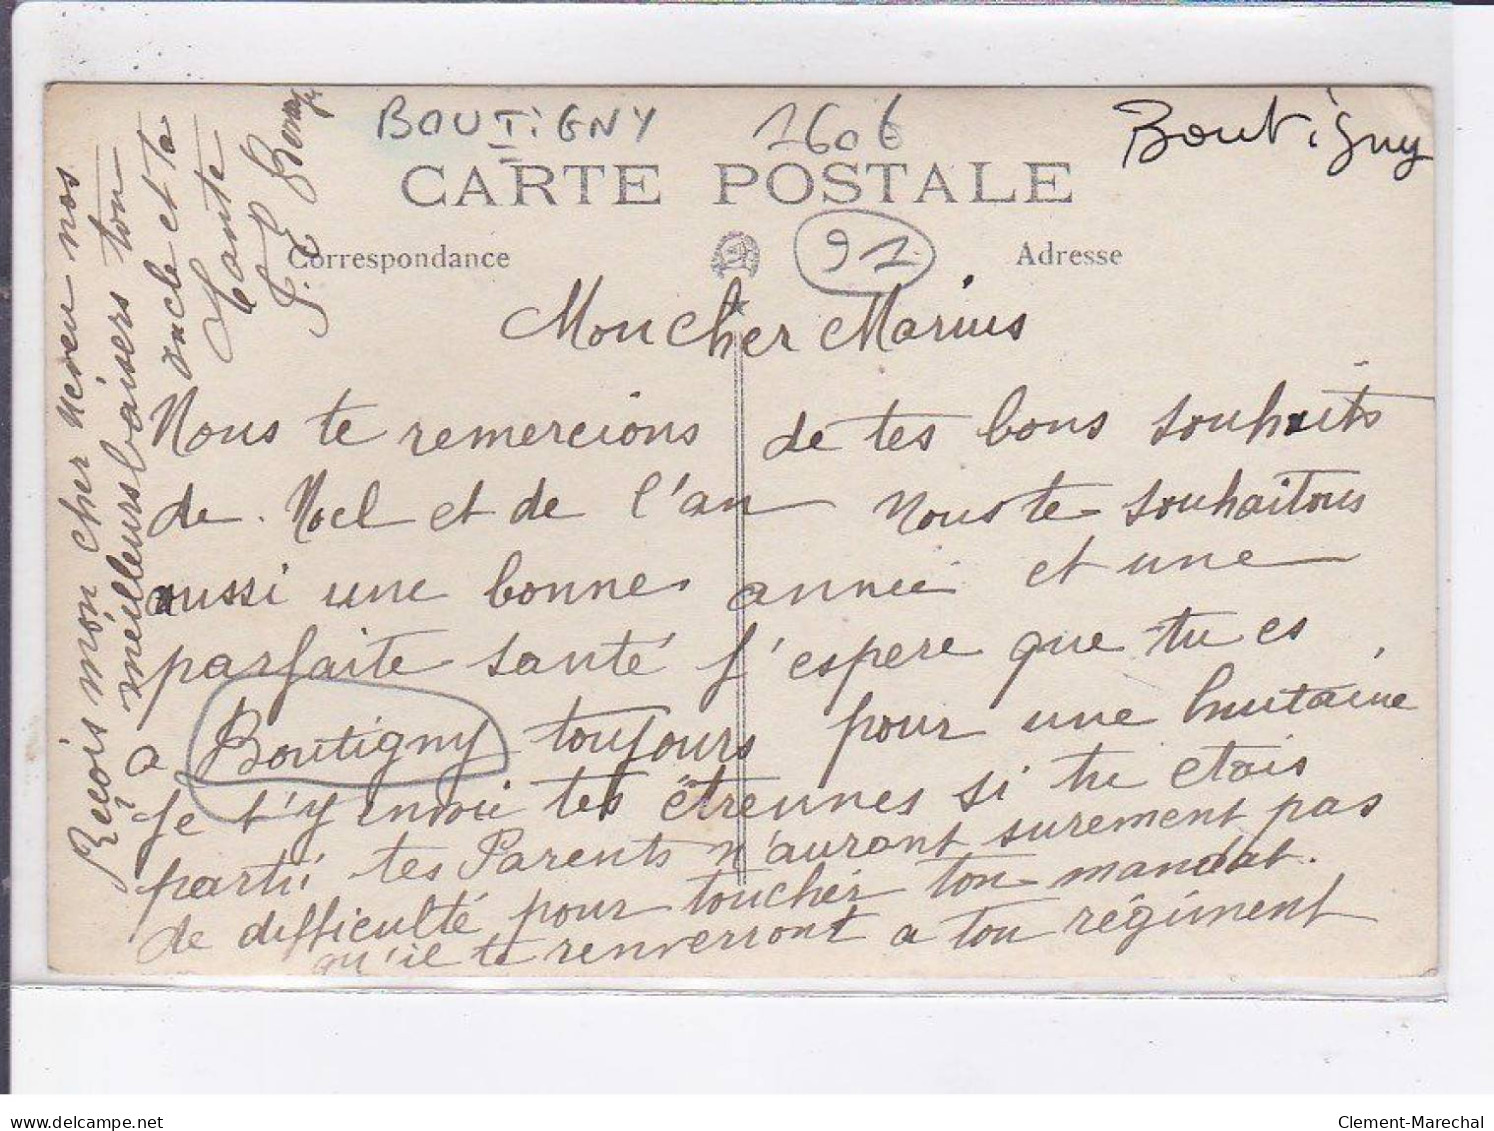 BOUTIGNY 1606 Boutigny
CARTE POSTALE
Correspondance 91 Adresse
Mon cher Marius
Nous te remercions de tes bons souhaits
de Noel et de l'an nous te souhaitons
aussi une bonne année et une
parfaite santé j'espere que tu es
a Boutigny toujours pour une huitaine
Je t'y envoi tes étrennes si tu etais
parti tes Parents n'auront surement pas
de difficulté pour toucher ton mandat.
qu'il te renverront a ton régiment
Reçois mon cher neveu nos
meilleurs baisers ton
oncle et ta
tante
delcampe.net
Clement-Marechal